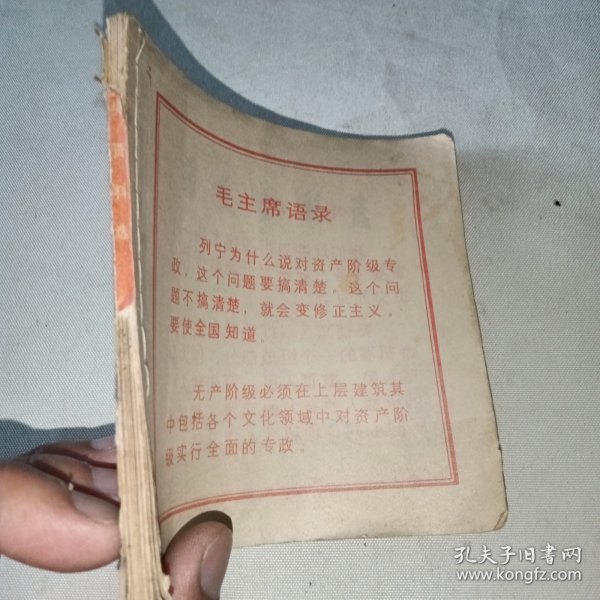 毛主席语录
列宁为什么说对资产阶级专
政，这个问题要搞清楚。这个问
题不搞清楚，就会变修正主义。
要使全国知道。
无产阶级必须在上层建筑其
中包括各个文化领域中对资产阶
级实行全面的专政。
孔夫子旧书网
www.kongfz.com